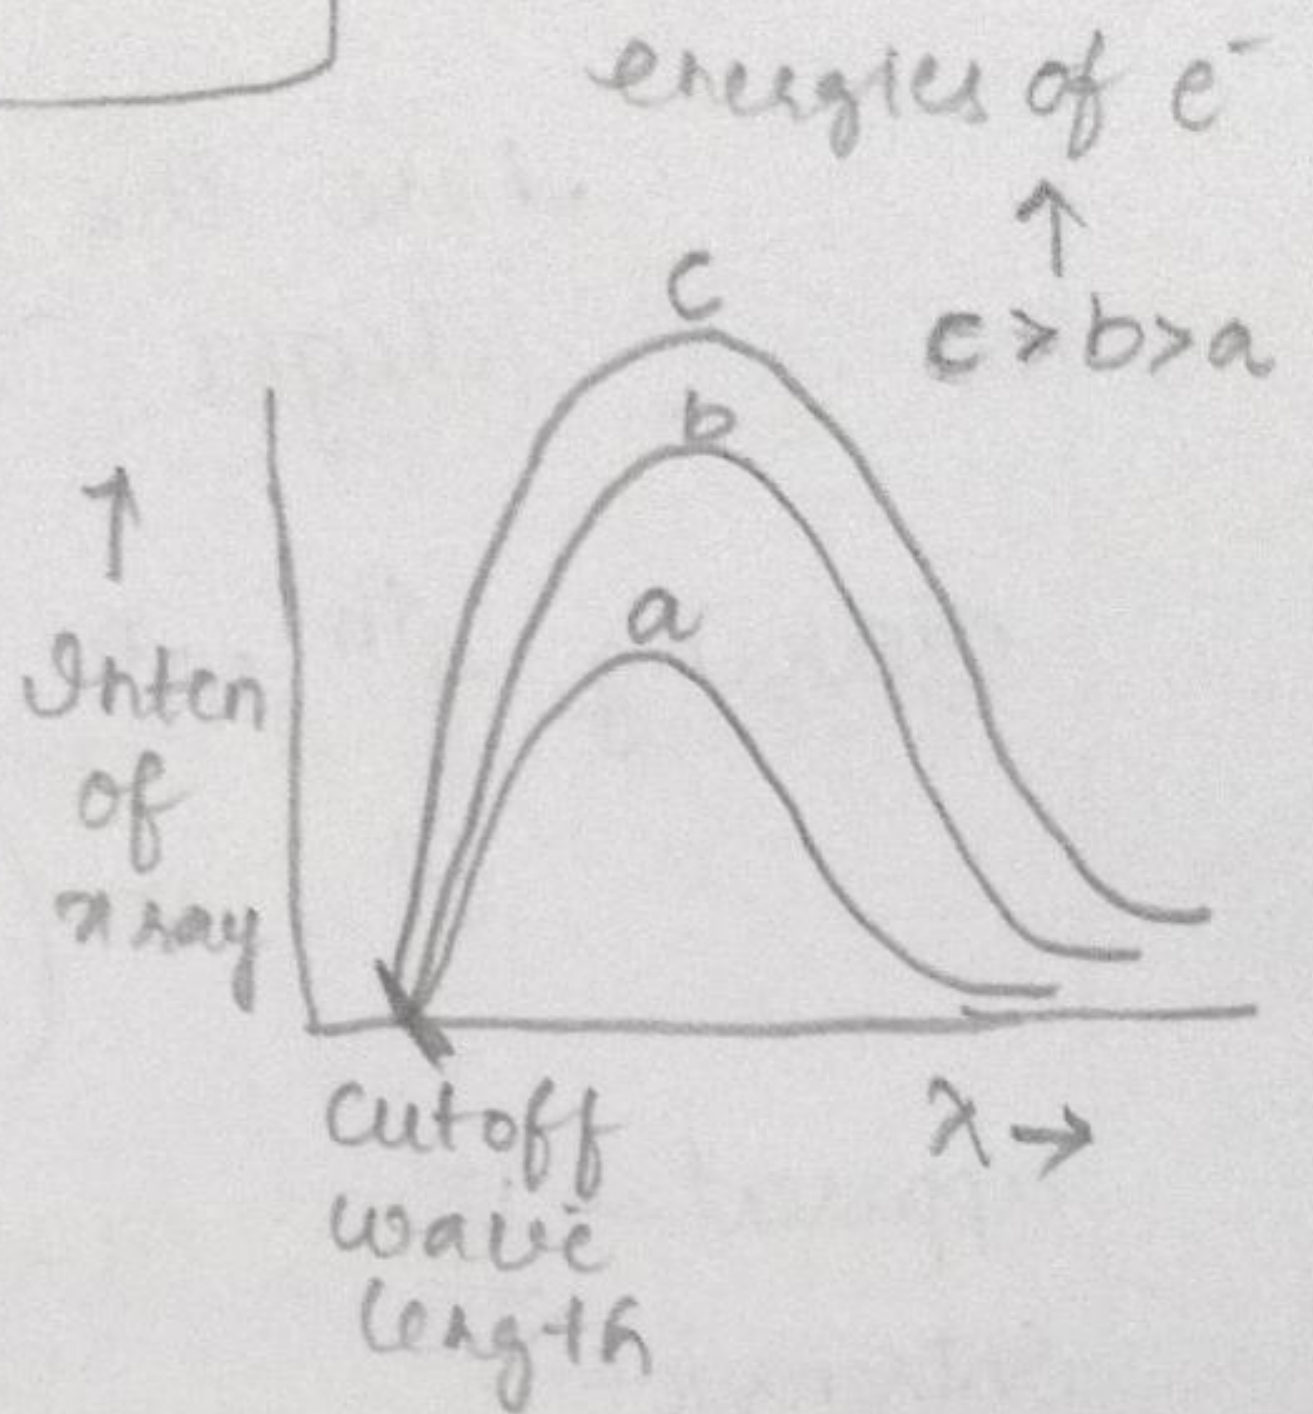 energies of e⁻
↑
c > b > a
c
b
a
↑
Inten
of
x ray
cutoff
wave
length
λ →